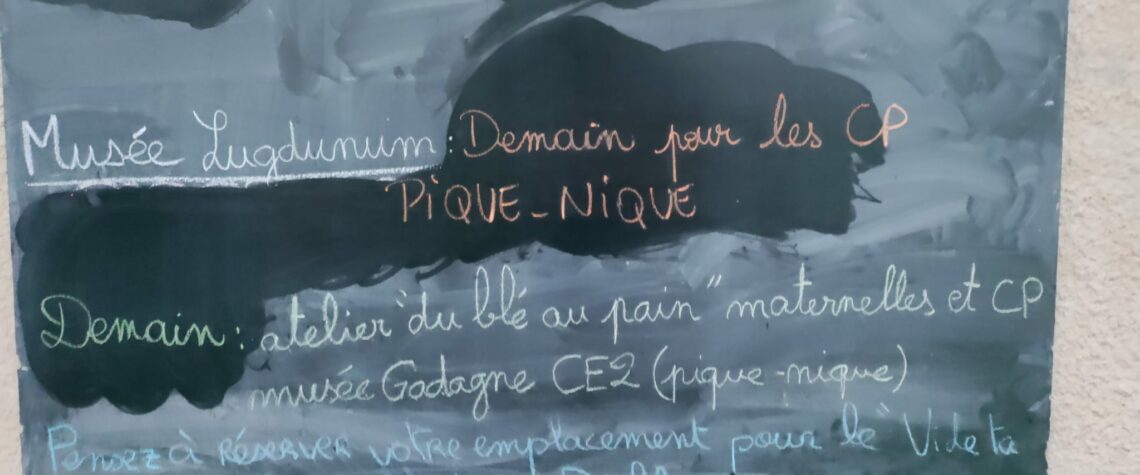 Musée Lugdunum : Demain pour les CP
PiQUE-NiQUE
Demain : atelier "du blé au pain" maternelles et CP
musée Gadagne CE2 (pique-nique)
Pensez à RÉSERVER votre emplacement pour le "Vide ta